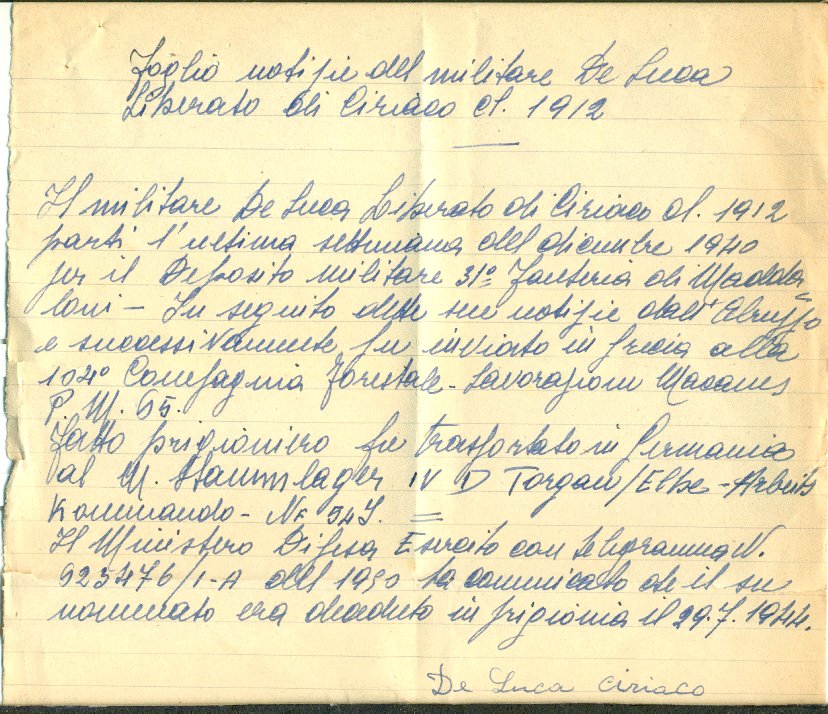 Foglio notizie del militare De Luca
Liberato di Ciriaco cl. 1912
Il militare De Luca Liberato di Ciriaco cl. 1912
partì l'ultima settimana del dicembre 1940
per il Deposito militare 31º Fanteria di Madda=
loni - In seguito dette sue notizie dall'Abruzzo
e successivamente fu inviato in Grecia alla
104º Compagnia Forestale - Lavorazioni
P. M. 65.
Fatto prigioniero fu trasportato in Germania
al M. Stammlager IV D Torgau/Elbe - Arbeits
Kommando - Nr
Il Ministero Difesa Esercito con telegramma N.
623476/1-A del 1950 ha comunicato che il su
nominato era deceduto in prigionia il 29.7.1944.
De Luca Ciriaco